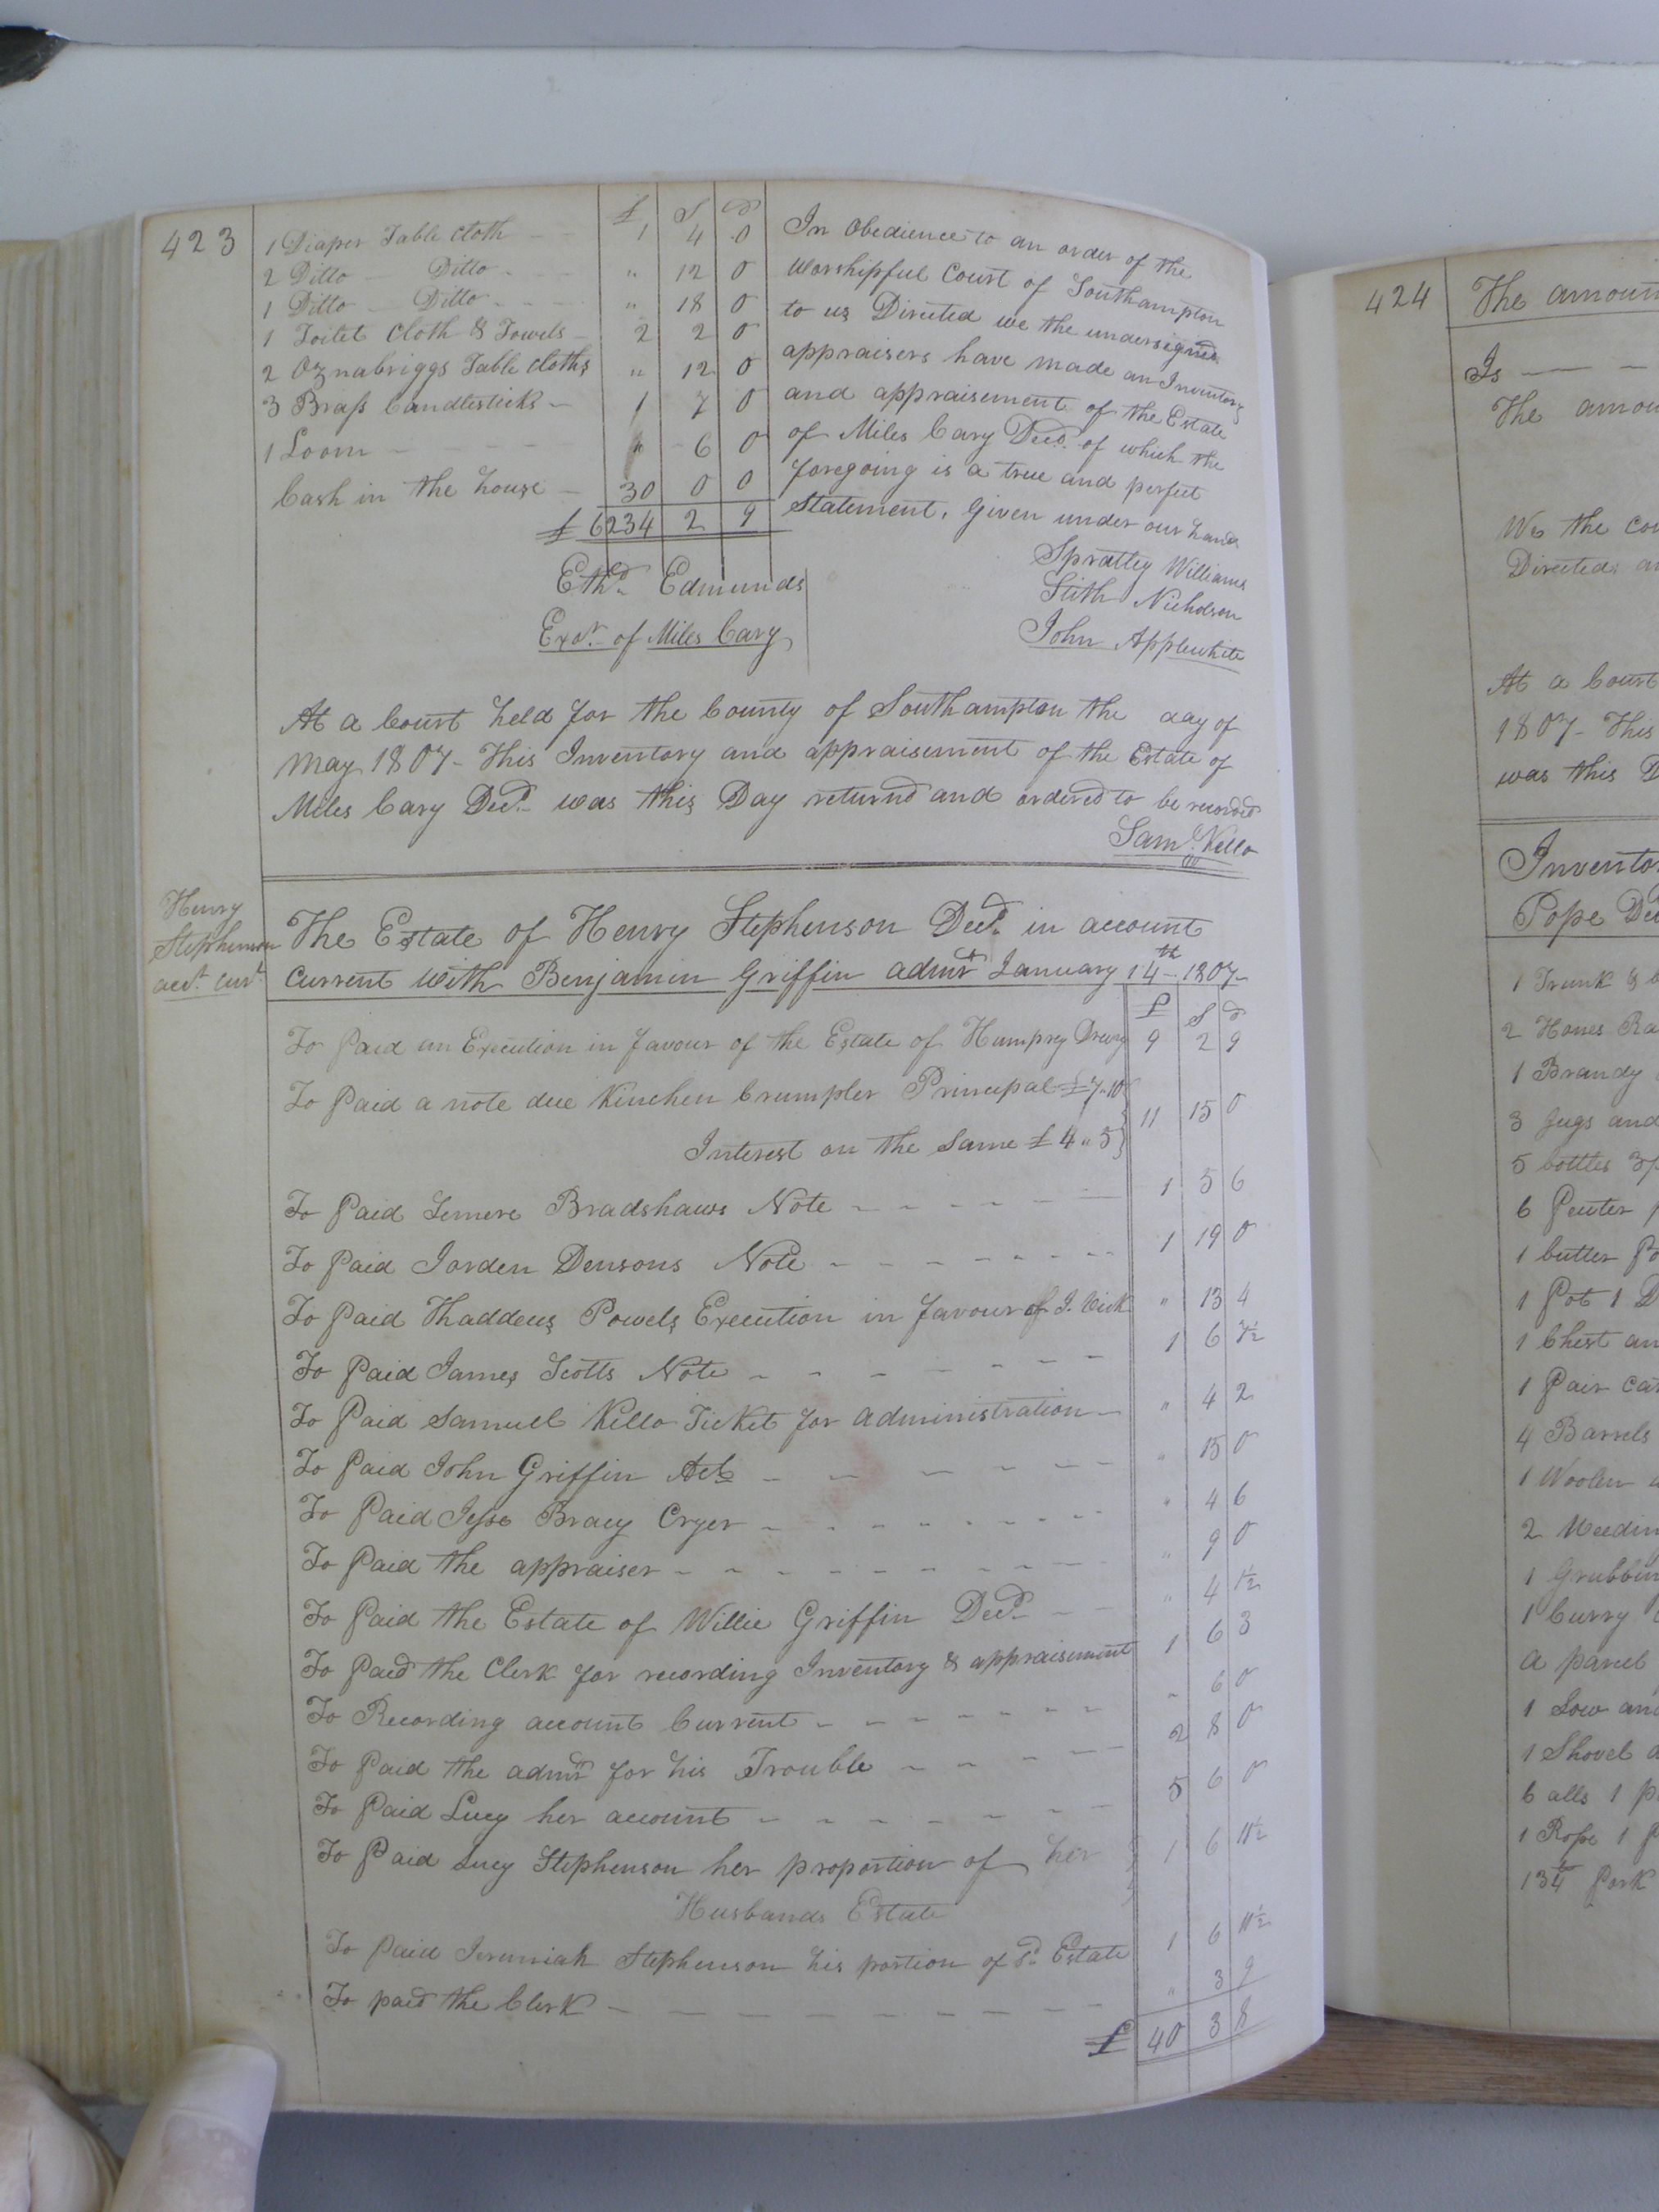 423
£ S D
1 Diaper Table cloth - - 1 4 0
2 Ditto - Ditto - - - " 12 0
1 Ditto - Ditto - - - " 18 0
1 Toilet Cloth & Towels - 2 2 0
2 Oznabriggs Table Cloths " 12 0
3 Brass Candlesticks - 1 7 0
1 Loom - - - - " 6 0
Cash in the house - 30 0 0
£ 6234 2 9
Ethd. Edmunds
Exor. of Miles Cary
In Obedience to an order of the
Worshipful Court of Southampton
to us Directed we the undersigned
appraisers have made an Inventory
and appraisement of the Estate
of Miles Cary Decd. of which the
foregoing is a true and perfect
Statement. Given under our hands
Spratley Williams
Stith Nicholson
John Applewhite
At a Court held for the County of Southampton the day of
May 1807- This Inventory and appraisement of the Estate of
Miles Cary Decd. was this Day returnd and ordered to be recorded
Saml. Kello
Henry
Stephenson
acct. curt.
The Estate of Henry Stephenson Decd. in account
Current with Benjamin Griffin admr January 14th- 1807-
£ S D
To Paid an Execution in favour of the Estate of Humprey Drewry 9 2 9
To Paid a note due Kinchen Crumpler Principal £7"10
Interest on the Same £4"5 } 11 15 0
To Paid Bradshaws Note - - - - - 1 5 6
To Paid Jorden Densons Note - - - - - - 1 19 0
To Paid Thaddeus Powels Execution in favour of J. Vick " 13 4
To Paid James Scotts Note - - - - - - - 1 6 7½
To Paid Samuel Kello Ticket for administration - " 4 2
To Paid John Griffin Act - - - - - - " 15 0
To Paid Jesse Bracy Cryer - - - - - - - - " 4 6
To Paid the appraiser - - - - - - - - - " 9 0
To Paid the Estate of Willie Griffin Decd. - - " 4 1½
To Paid the Clerk for recording Inventory & appraisement 1 6 3
To Recording account Current - - - - - - - " 6 0
To Paid the admr for his Trouble - - - - - 2 8 0
To Paid Lucy her account - - - - - - - 5 6 0
To Paid Lucy Stephenson her proportion of her } 1 6 11½
Husbands Estate
To Paid Jeremiah Stephenson his portion of sd. Estate 1 6 11½
To paid the Clerk - - - - - - - - - " 3 9
£ 40 3 8
424
The amoun
Is - - -
The amou
We the cou
Directed an
At a Court
1807- This
was this D
Invento
Pope Dec
1 Trunk &
2 Hones Ra
1 Brandy
3 Jugs and
5 bottles 3
6 Peuter
1 butter Po
1 Pot 1 D
1 Chest an
1 Pair Car
4 Barrels
1 Woolen
2 Weedin
1 Grubbin
1 Curry
A parcel
1 Sow and
1 Shovel
6 alls 1 p
1 Rope 1 P
134 Pork